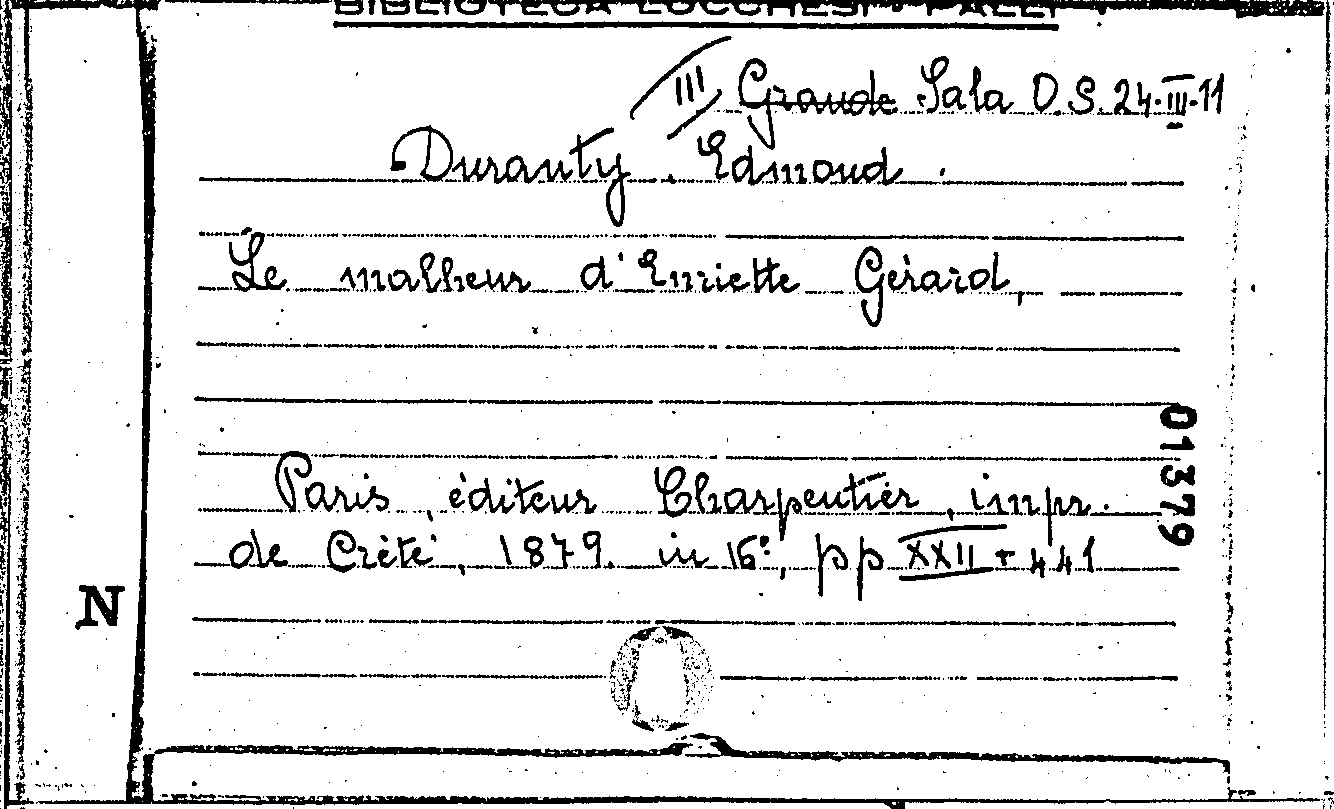 BIBLIOTECA LUCCHESI - PALLI
III Grande Sala D.S. 24-III-11
Duranty. Edmond.
Le malheur d'Enriette Gérard,
Paris, éditeur Charpentier, impr.
de Crèté, 1879. in 16°, pp XXII + 441
01379
N